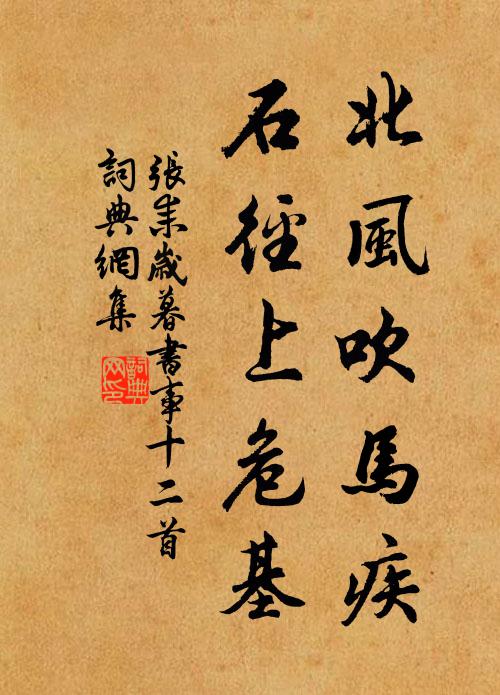 北風吹馬疾
石徑上危基
張耒歲暮書事十二首
詞典網集
詞典網印